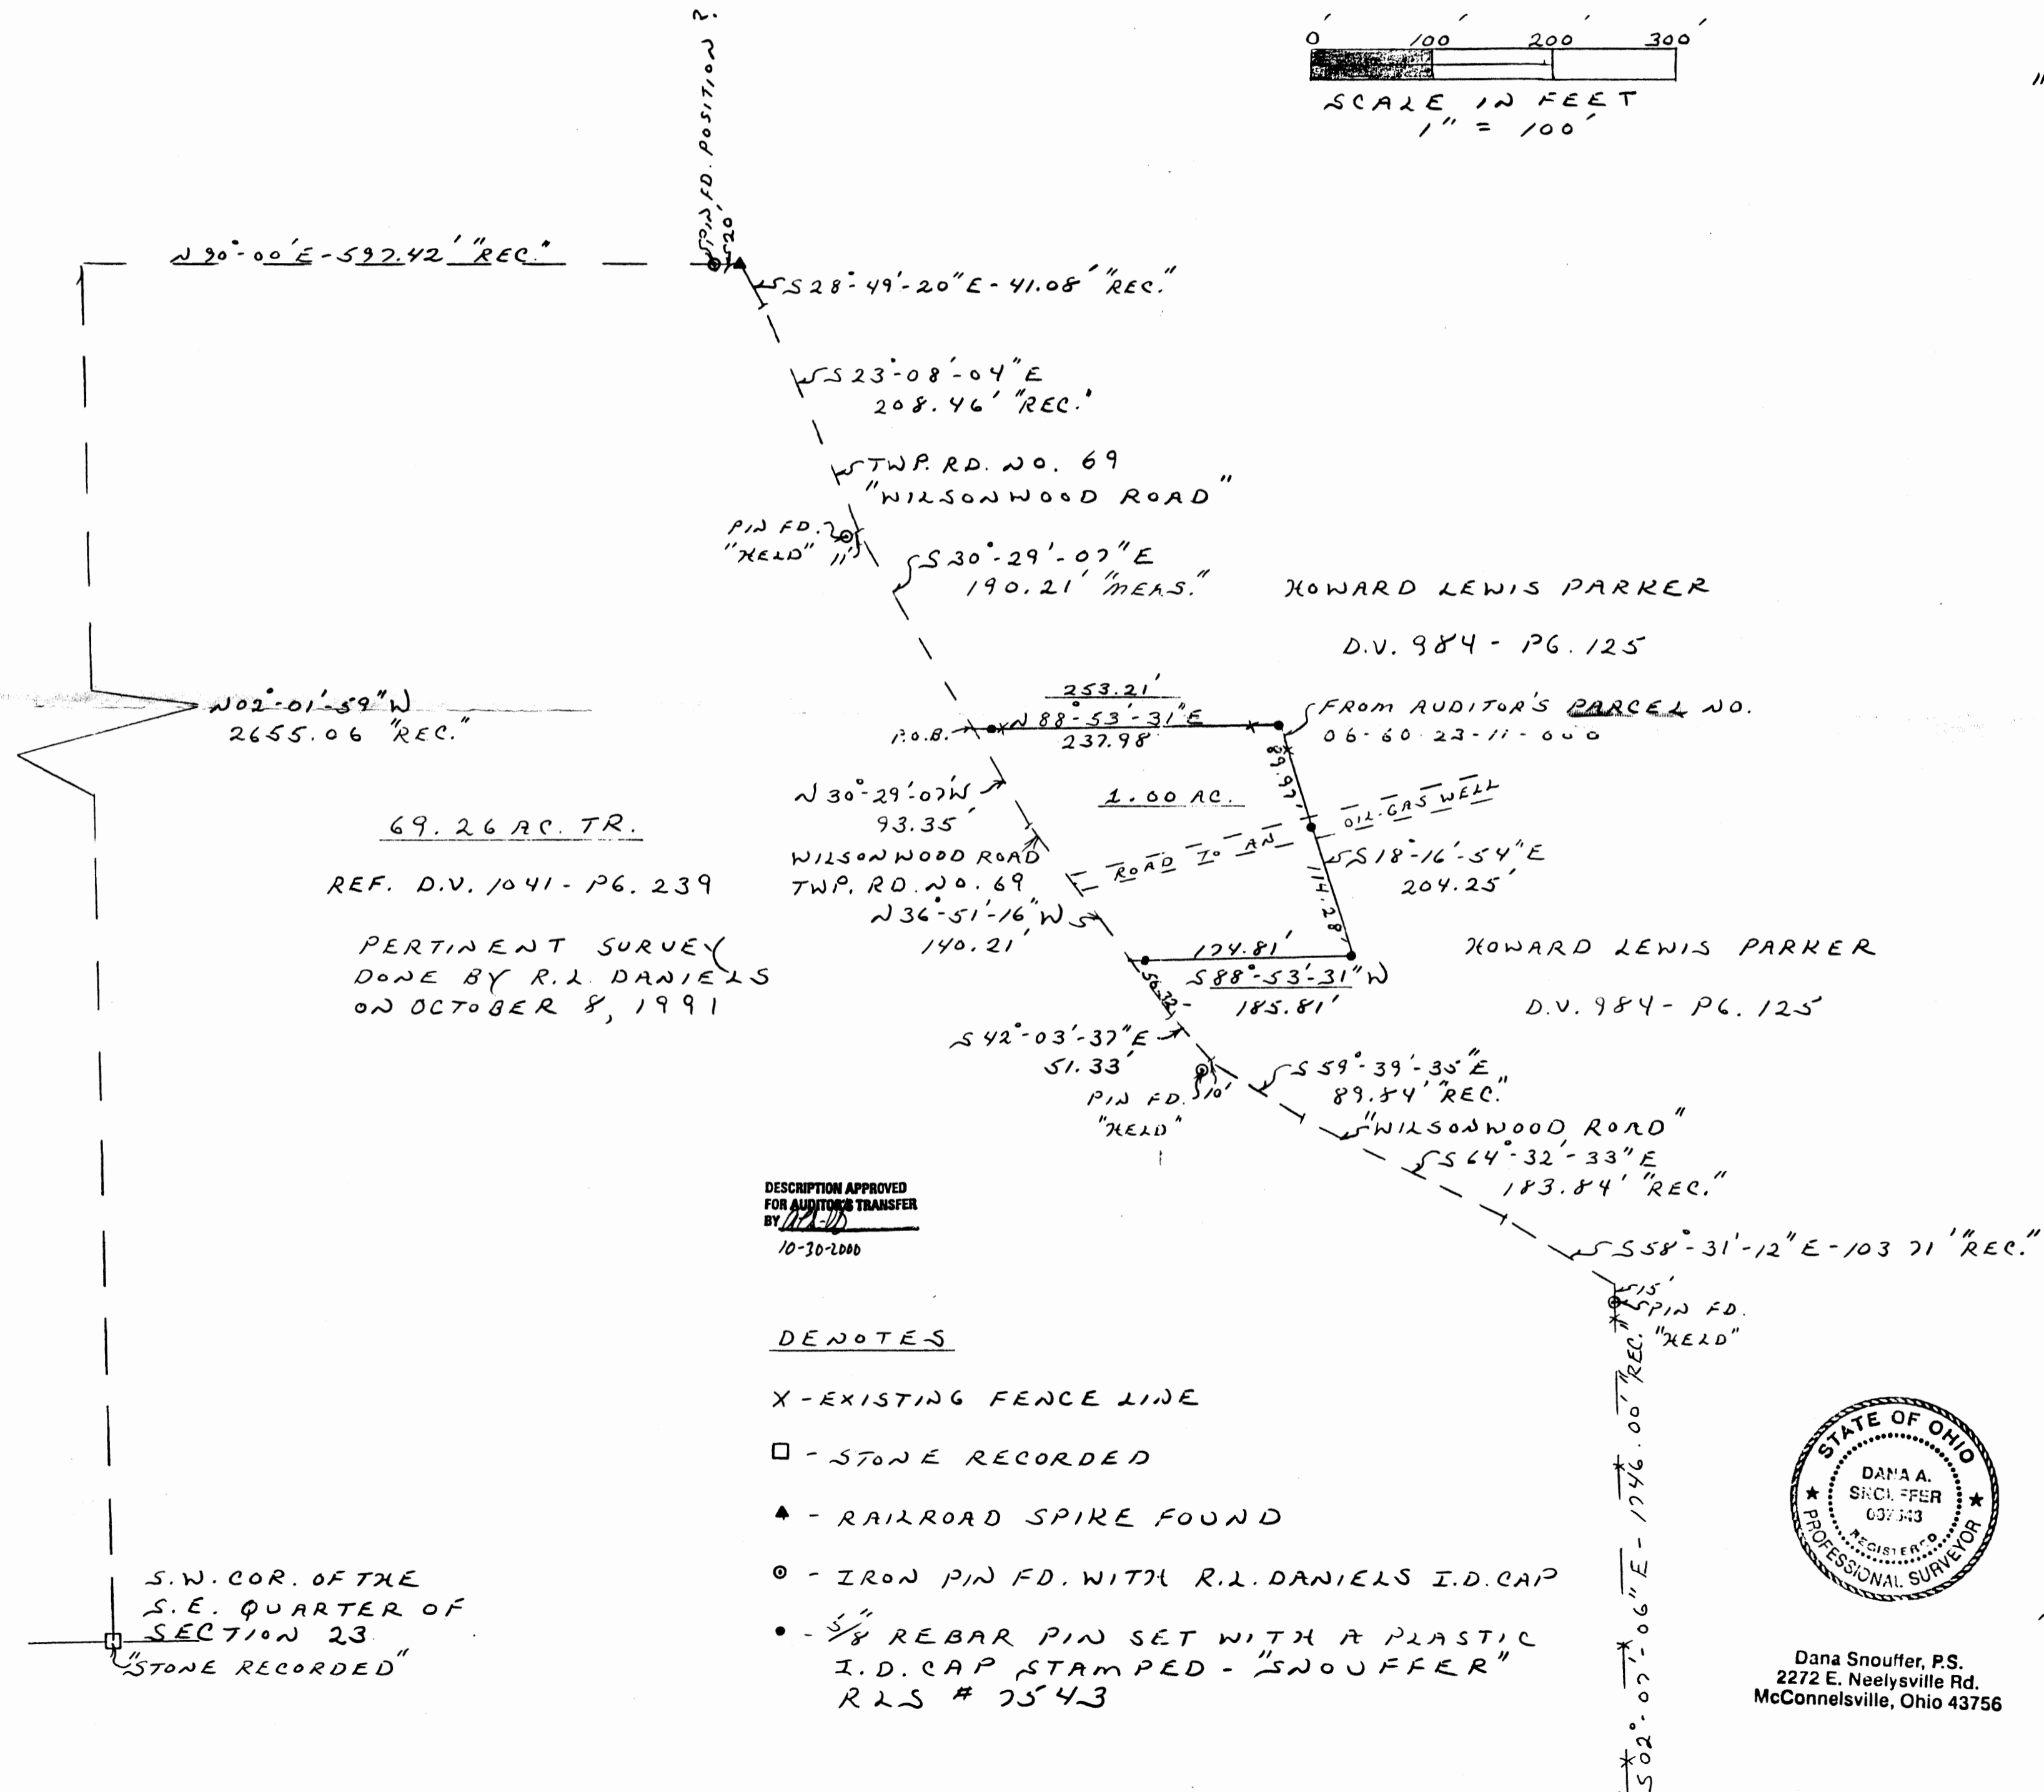 0' 100' 200' 300'
SCALE IN FEET
1" = 100'
PIN FD. POSITION ?
20'
N 90°-00' E - 597.42' "REC."
S 28°-49'-20" E - 41.08' "REC."
S 23°-08'-04" E
208.46' "REC."
TWP. RD. NO. 69
"WILSONWOOD ROAD"
PIN FD.
"HELD" 11'
S 30°-29'-07" E
190.21' "MEAS."
HOWARD LEWIS PARKER
D.V. 984 - PG. 125
N 02°-01'-59" W
2655.06 "REC."
253.21'
P.O.B.
N 88°-53'-31" E
237.98
FROM AUDITOR'S PARCEL NO.
06-60-23-11-000
89.97'
N 30°-29'-07" W
93.35'
1.00 AC.
ROAD TO AN OIL-GAS WELL
69.26 AC. TR.
REF. D.V. 1041 - PG. 239
WILSONWOOD ROAD
TWP. RD. NO. 69
S 18°-16'-54" E
204.25'
114.28'
N 36°-51'-16" W
140.21'
PERTINENT SURVEY
DONE BY R.L. DANIELS
ON OCTOBER 8, 1991
174.81'
S 88°-53'-31" W
185.81'
HOWARD LEWIS PARKER
D.V. 984 - PG. 125
56.32'
S 42°-03'-37" E
51.33'
PIN FD. 10'
"HELD"
S 59°-39'-35" E
89.84' "REC."
"WILSONWOOD ROAD"
S 64°-32'-33" E
183.84' "REC."
S 58°-31'-12" E - 103 71' "REC."
15'
PIN FD.
"HELD"
S 02°-07'-06" E - 1746.00' "REC."
DESCRIPTION APPROVED
FOR AUDITOR'S TRANSFER
BY
10-30-2000
DENOTES
X - EXISTING FENCE LINE
- STONE RECORDED
- RAILROAD SPIKE FOUND
- IRON PIN FD. WITH R.L. DANIELS I.D. CAP
- 5/8" REBAR PIN SET WITH A PLASTIC
I.D. CAP STAMPED - "SNOUFFER"
RLS # 7543
S.W. COR. OF THE
S.E. QUARTER OF
SECTION 23
"STONE RECORDED"
STATE OF OHIO
DANA A.
REGISTERED
PROFESSIONAL SURVEYOR
Dana Snouffer, P.S.
2272 E. Neelysville Rd.
McConnelsville, Ohio 43756